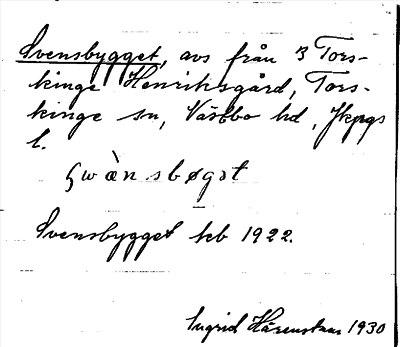 Svensbygget, avs från 3 Tors-
kinge Henriksgård, Tors-
kinge sn, Västbo hd, Jkpgs
l.
swènsbøgət
Svensbygget jeb 1922.
Ingrid Härenstam 1930